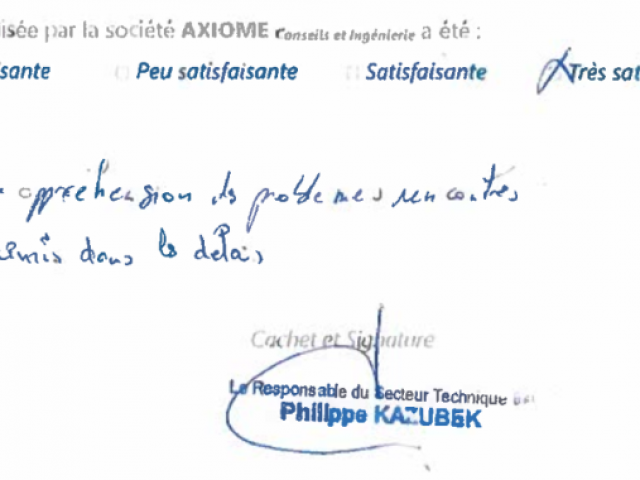 isée par la société AXIOME Conseils et Ingénierie a été :
isante Peu satisfaisante Satisfaisante Très sat
appréhension des problèmes rencontrés
remis dans les délais
Cachet et Signature
Le Responsable du Secteur Technique
Philippe KAZUBEK